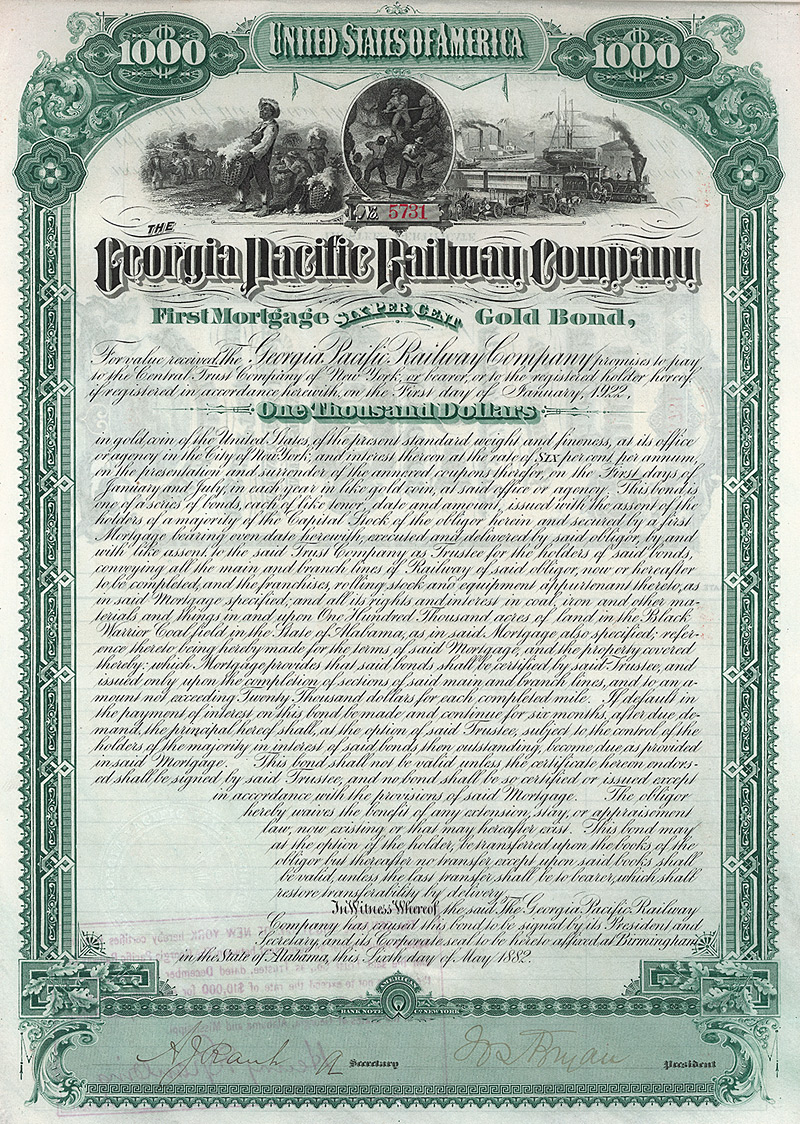 1000 UNITED STATES OF AMERICA 1000
No. 5731
THE
Georgia Pacific Railway Company
First Mortgage SIX PER CENT Gold Bond,
For value received The Georgia Pacific Railway Company promises to pay
to the Central Trust Company of New York, or bearer, or to the registered holder hereof,
if registered in accordance herewith, on the First day of January, 1922,
One Thousand Dollars
in gold coin of the United States, of the present standard weight and fineness, at its office
or agency in the City of New York, and interest thereon at the rate of six per cent. per annum,
on the presentation and surrender of the annexed coupons therefor, on the First days of
January and July, in each year in like gold coin, at said office or agency. This bond is
one of a series of bonds, each of like tenor, date and amount, issued with the assent of the
holders of a majority of the Capital Stock of the obligor herein and secured by a first
Mortgage bearing even date herewith, executed and delivered by said obligor, by and
with like assent, to the said Trust Company as Trustee for the holders of said bonds,
conveying all the main and branch lines of Railway of said obligor, now or hereafter
to be completed, and the franchises, rolling stock and equipment appurtenant thereto, as
in said Mortgage specified; and all its rights and interest in coal, iron and other ma-
terials and things in and upon One Hundred Thousand acres of land in the Black
Warrior Coal field in the State of Alabama, as in said Mortgage also specified; refer-
ence thereto being hereby made for the terms of said Mortgage, and the property covered
thereby: which Mortgage provides that said bonds shall be certified by said Trustee, and
issued only upon the completion of sections of said main and branch lines, and to an a-
mount not exceeding Twenty Thousand dollars for each completed mile. If default in
the payment of interest on this bond be made and continue for six months, after due de-
mand, the principal hereof shall, at the option of said Trustee, subject to the control of the
holders of the majority in interest of said bonds then outstanding, become due as provided
in said Mortgage. This bond shall not be valid unless the certificate hereon endors-
ed shall be signed by said Trustee, and no bond shall be so certified or issued except
in accordance with the provisions of said Mortgage. The obligor
hereby waives the benefit of any extension, stay, or appraisement
law, now existing or that may hereafter exist. This bond may
at the option of the holder, be transferred upon the books of the
obligor but thereafter no transfer, except upon said books shall
be valid, unless the last transfer shall be to bearer, which shall
restore transferability by delivery.
In Witness Whereof, the said The Georgia Pacific Railway
Company has caused this bond to be signed by its President and
Secretary, and its Corporate seal to be hereto affixed at Birmingham
in the State of Alabama, this Sixth day of May 1882.
AMERICAN
BANK NOTE CO. NEW YORK
Secretary President